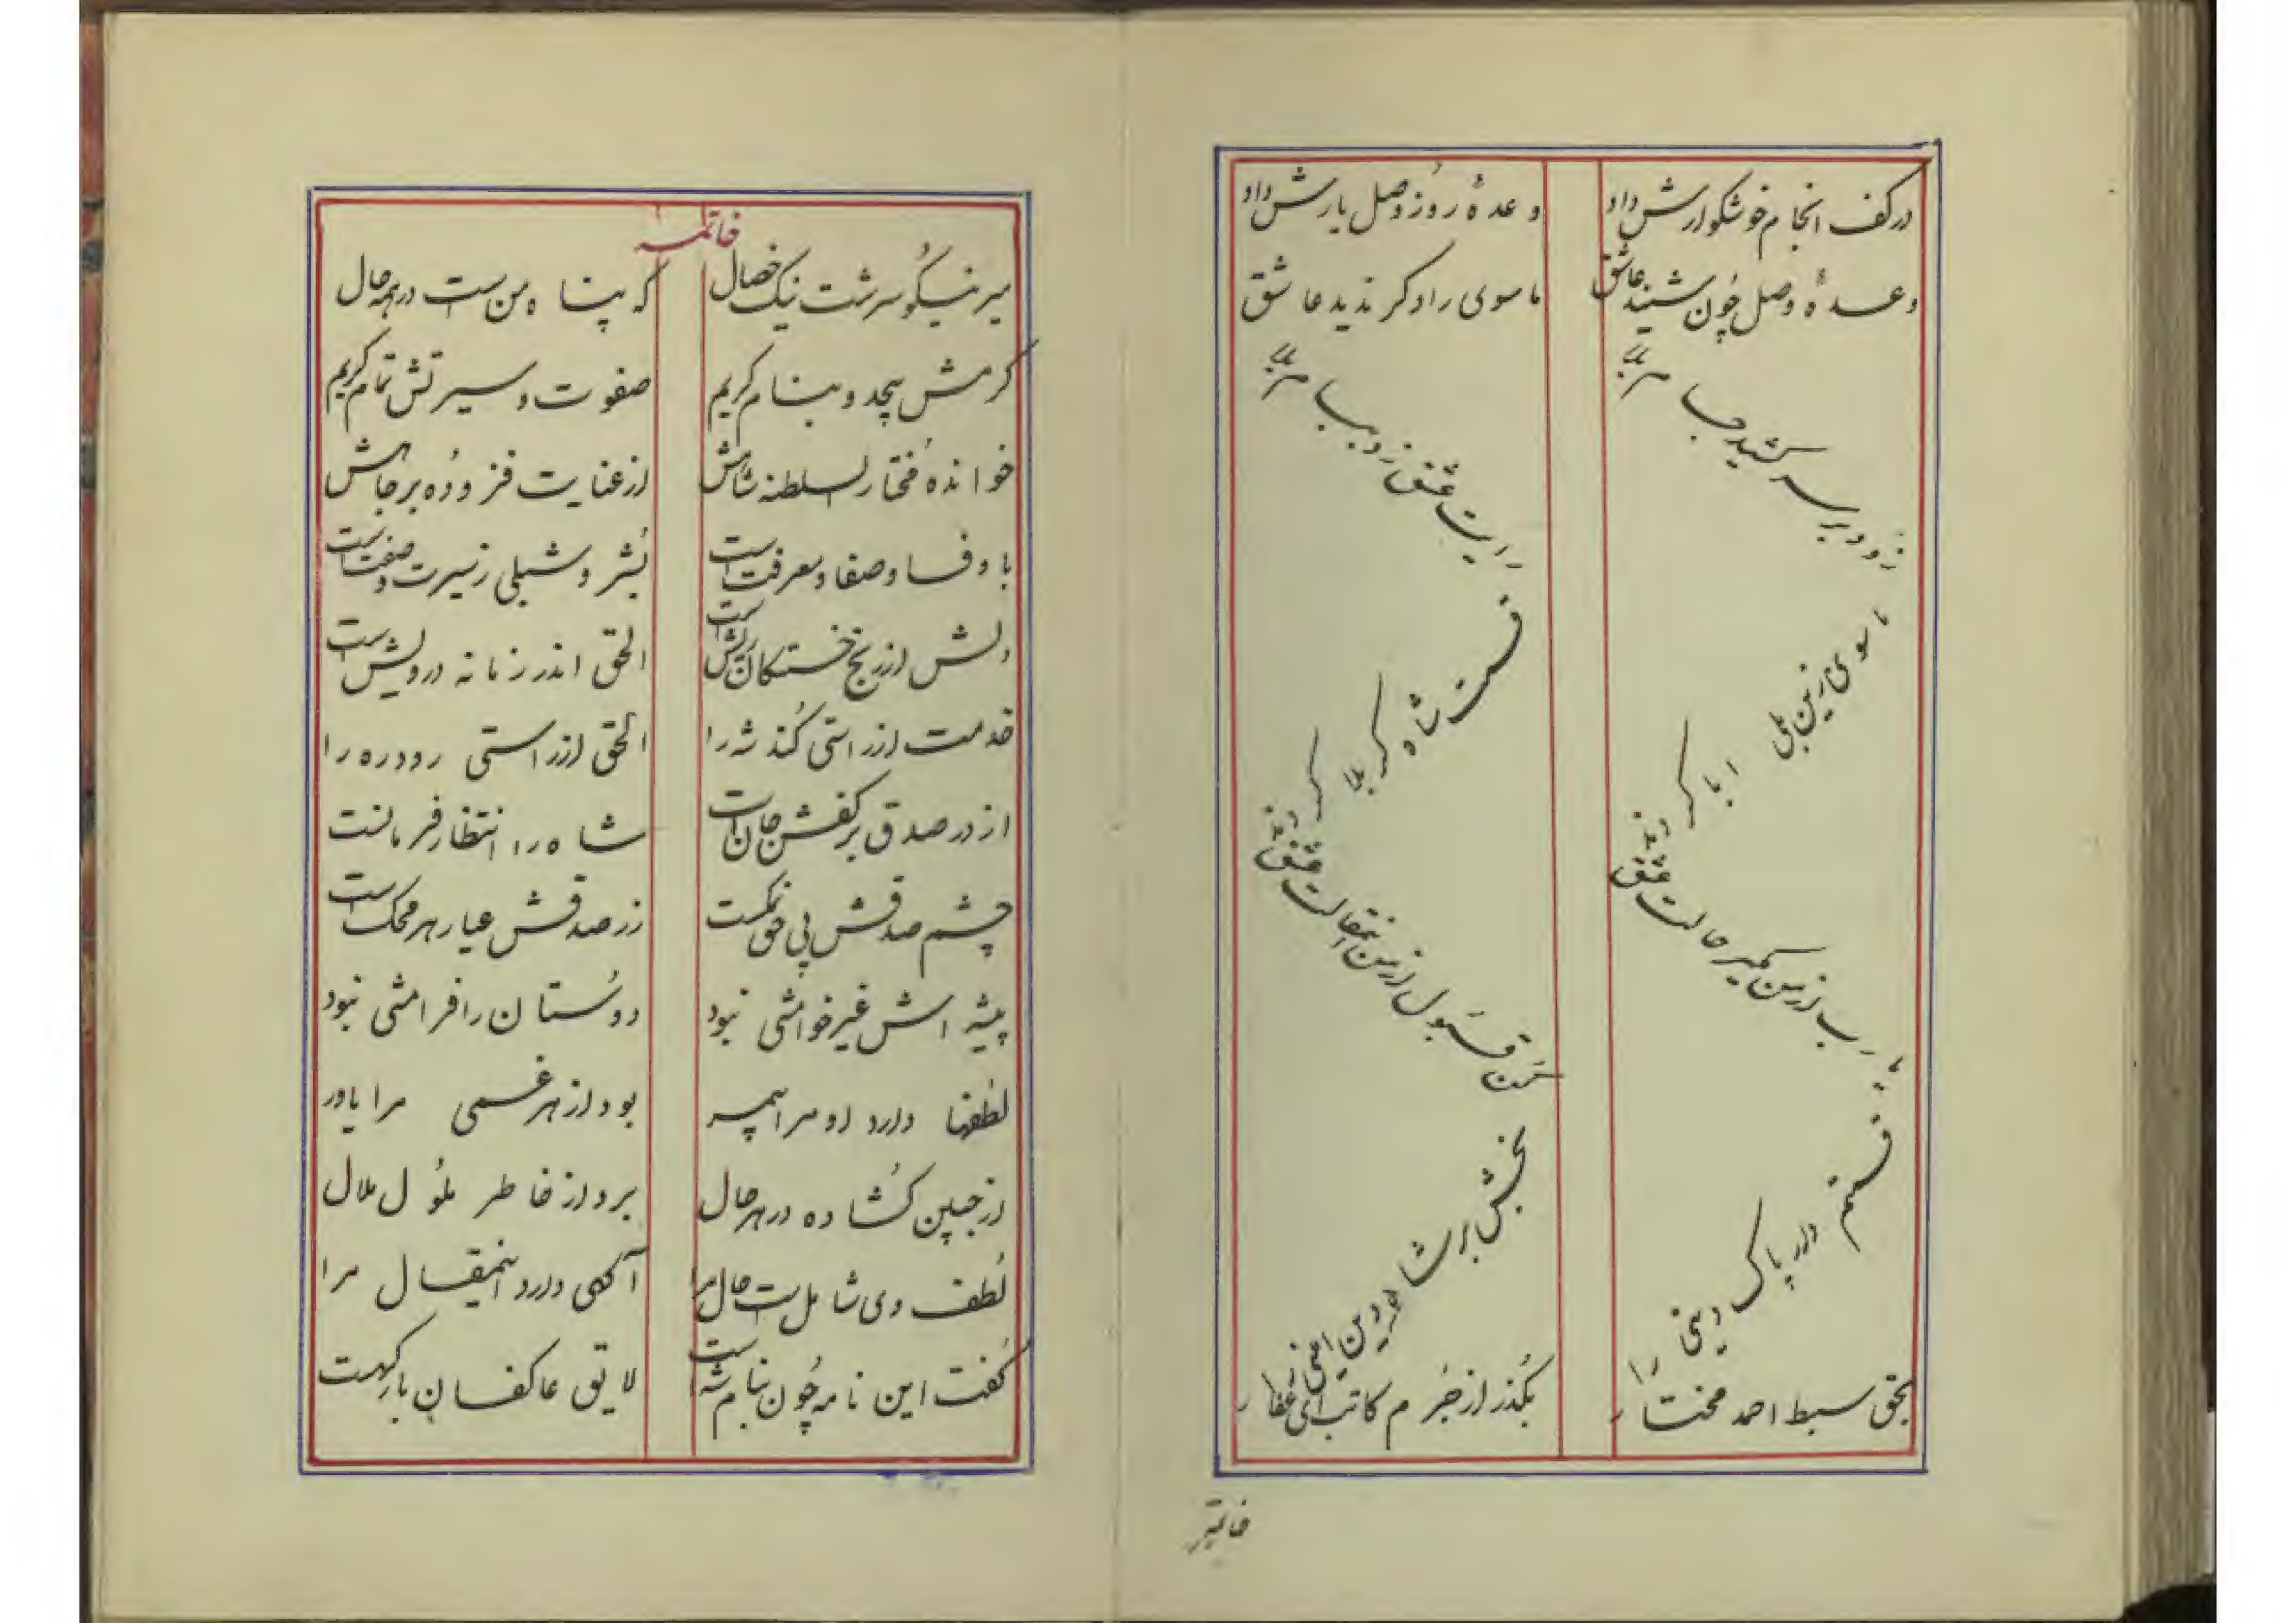 در کف انجام خوشگوارش داد وعدهٔ روز وصل یارش داد
وعدهٔ وصل چون شنید عاشق ماسوی را دگر ندید عاشق
زود بر سر کشید جام بلا رایت عشق زد ببام بلا
ماسوی زین بلی ابا کردند قسمت شاه کربلا کردند
یا رب از من مگیر حالت عشق کن قبول از من این مقالت عشق
قسمتم دار پاک دینی را بخش بر شاه دین امینی را
بحق سبط احمد مختار بگذر از جرم کاتب ای غفار
خاتمه
خاتمه
میر نیکو سرشت نیک خصال که پناه من است در همه حال
کرمش بیحد و بنام کریم صفوت و سیرتش تمام کریم
خوانده مختار السلطنه شاهش از عنایت فزوده بر جاهش
با وفا و صفا و معرفت است بُشر و شبلی ز سیرت و صفت است
دلش از رنج خستگان ریش است الحق اندر زمانه درویش است
خدمت از راستی کند شه را الحق از راستی رود ره را
از در صدق بر کفش جان است شاه را انتظار فرمانست
چشم صدقش پی حق نمکست زر صدقش عیار هر محک است
پیشه اش غیر خوامشی نبود دوستان را فرامشی نبود
لطفها دارد او مرا بسر بود از هر غمی مرا یاور
از جبین گشاده در هر حال برد از خاطر ملول ملال
لطف وی شامل است حال مرا آگهی دارد اینمقال مرا
گفت این نامه چون بنام شه است لایق عاکفان بارگهست